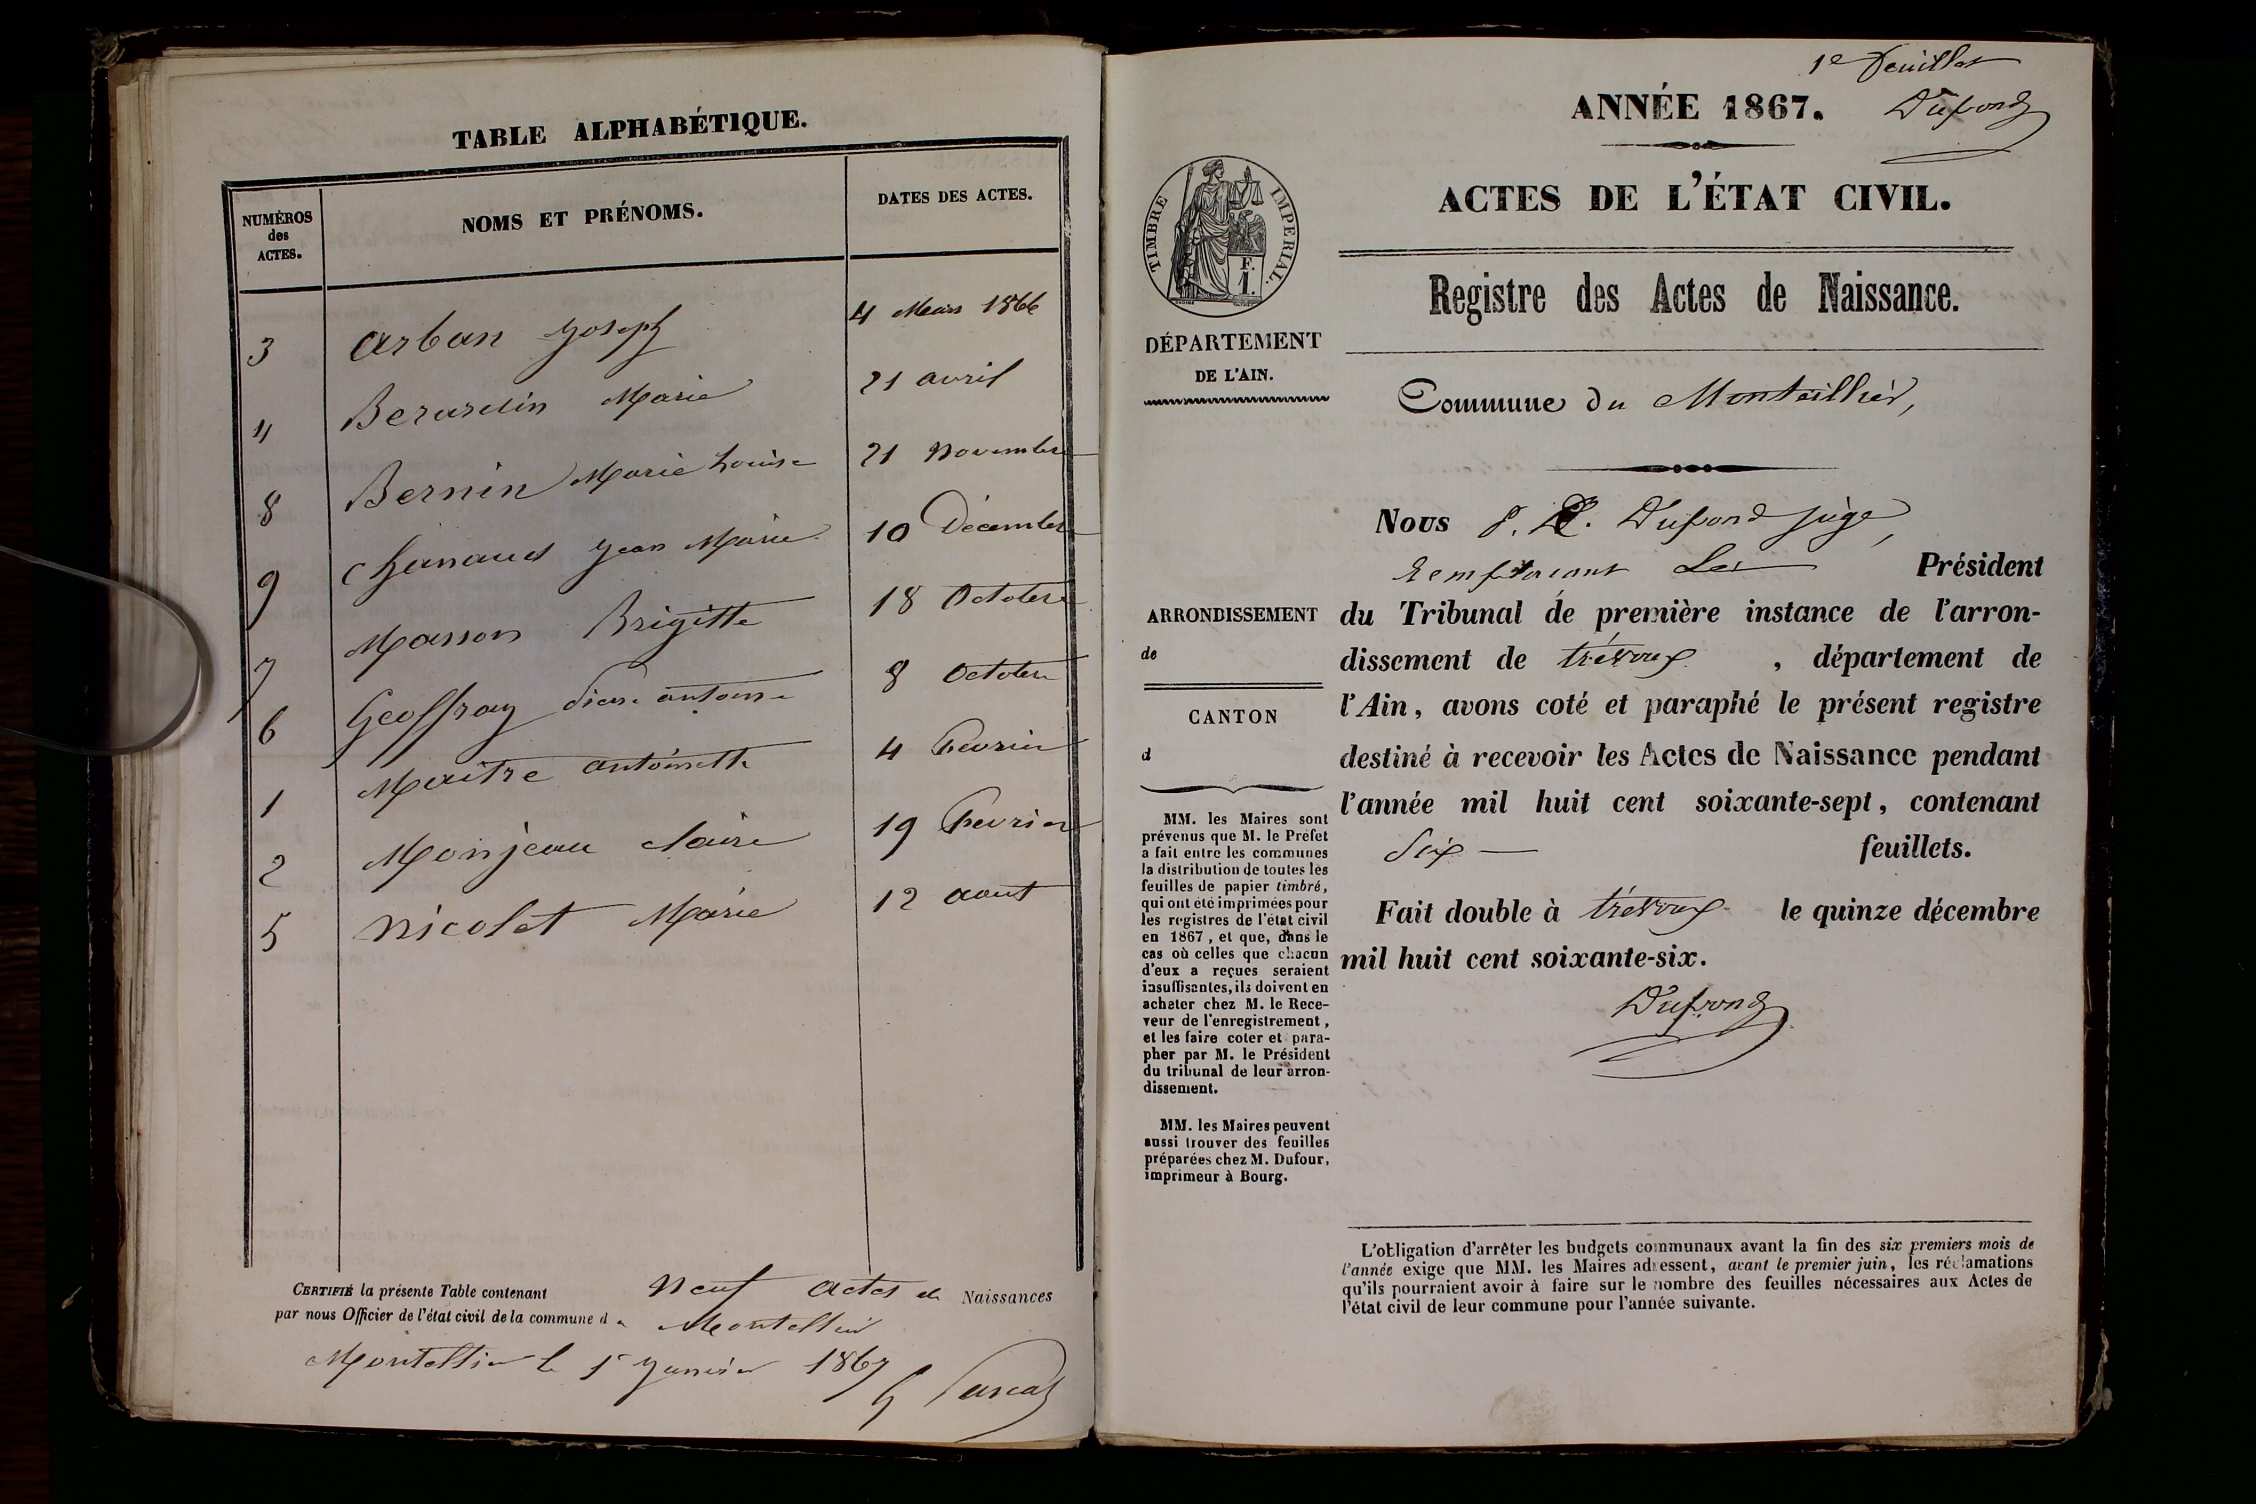 TABLE ALPHABÉTIQUE.
NUMÉROS des ACTES. NOMS ET PRÉNOMS. DATES DES ACTES.
3 Arban Joseph 4 Mars 1866
4 Berardin Marie 21 avril
8 Bernin Marie Louise 21 Novembre
9 Chanaud Jean Marie 10 Décembre
7 Masson Brigitte 18 Octobre
6 Geoffray antoine 8 Octobre
1 Maitre antoinette 4 Fevrier
2 Monjeau Claire 19 Fevrier
5 Nicolet Marie 12 aout
CERTIFIÉ la présente Table contenant Neuf actes de Naissances
par nous Officier de l'état civil de la commune de Montellier
Montellier le 1r Janvier 1867
Pascal
1e feuillet
Dupond
ANNÉE 1867.
ACTES DE L'ÉTAT CIVIL.
TIMBRE IMPERIAL.
F.
1.
Registre des Actes de Naissance.
DÉPARTEMENT
DE L'AIN.
Commune du Monteillier,
Nous Dupond juge,
remplacant Le Président
du Tribunal de première instance de l'arron-
dissement de trévoux, département de
l'Ain, avons coté et paraphé le présent registre
destiné à recevoir les Actes de Naissance pendant
l'année mil huit cent soixante-sept, contenant
Six feuillets.
Fait double à trévoux le quinze décembre
mil huit cent soixante-six.
Dupond
ARRONDISSEMENT
de
CANTON
d
MM. les Maires sont
prévenus que M. le Préfet
a fait entre les communes
la distribution de toutes les
feuilles de papier timbré,
qui ont été imprimées pour
les registres de l'état civil
en 1867, et que, dans le
cas où celles que chacun
d'eux a reçues seraient
insuffisantes, ils doivent en
acheter chez M. le Rece-
veur de l'enregistrement,
et les faire coter et para-
pher par M. le Président
du tribunal de leur arron-
dissement.
MM. les Maires peuvent
aussi trouver des feuilles
préparées chez M. Dufour,
imprimeur à Bourg.
L'obligation d'arrêter les budgets communaux avant la fin des six premiers mois de
l'année exige que MM. les Maires adressent, avant le premier juin, les réclamations
qu'ils pourraient avoir à faire sur le nombre des feuilles nécessaires aux Actes de
l'état civil de leur commune pour l'année suivante.